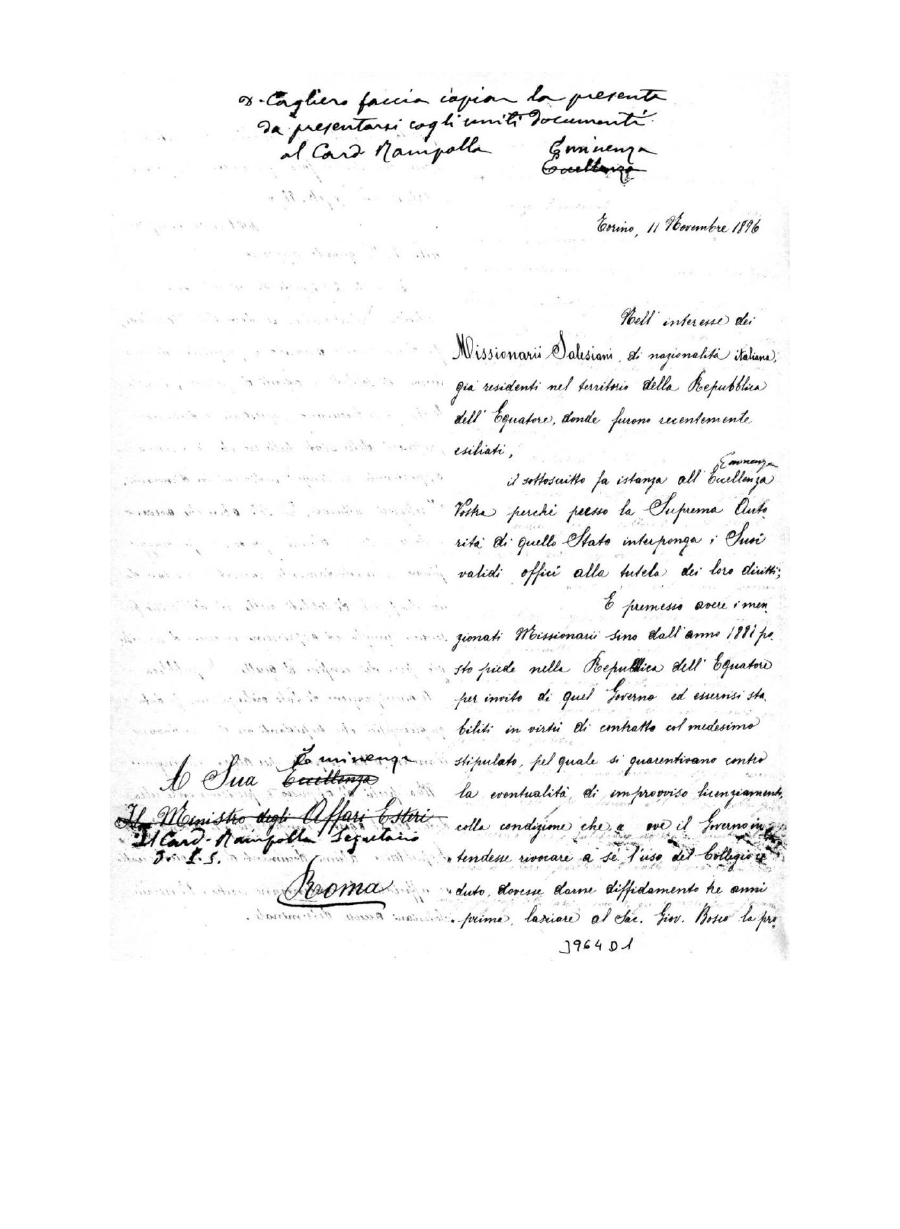 D. Cagliero faccia copiar la presente
da presentarsi cogli uniti documenti
al Card Rampolla
Eminenza
Eccellenza
Torino, 11 Novembre 1896
Nell' interesse dei
Missionarii Salesiani, di nazionalità italiana,
già residenti nel territorio della Repubblica
dell' Equatore, donde furono recentemente
esiliati,
Eminenza
il sottoscritto fa istanza all' Eccellenza
Vostra perchè presso la Suprema Auto
rità di quello Stato interponga i Suoi
validi offici alla tutela dei loro diritti;
E premesso avere i men
zionati Missionarii sino dall' anno 1887 po
sto piede nella Repubblica dell' Equatore
per invito di quel Governo ed esservisi sta
biliti in virtù di contratto col medesimo
stipulato, pel quale si guarentivano contro
la eventualità di improvviso licenziamento,
colla condizione che, ove il Governo in
tendesse rivocare a sè l'uso del Collegio ce
duto, dovesse darne diffidamento tre anni
prima, lasciare al Sac. Giov. Bosco la pro
Eminenza
A Sua Eccellenza
Il Ministro degli Affari Esteri
Il Card. Rampolla Segretario
Roma
J964 D1